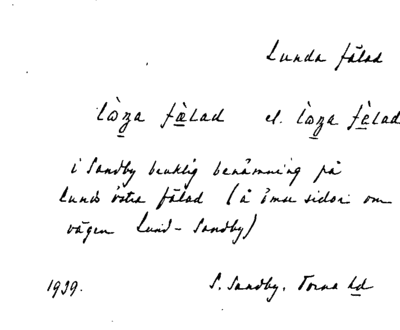 Lunda fälad
lò̱ꞥa fæ̱̀lad el. lò̱ꞥa fè̱lad
i Sandby bruklig benämning på
Lunds östra fälad (å ömse sidor om
vägen Lund - Sandby)
1929. S. Sandby. Torna hd